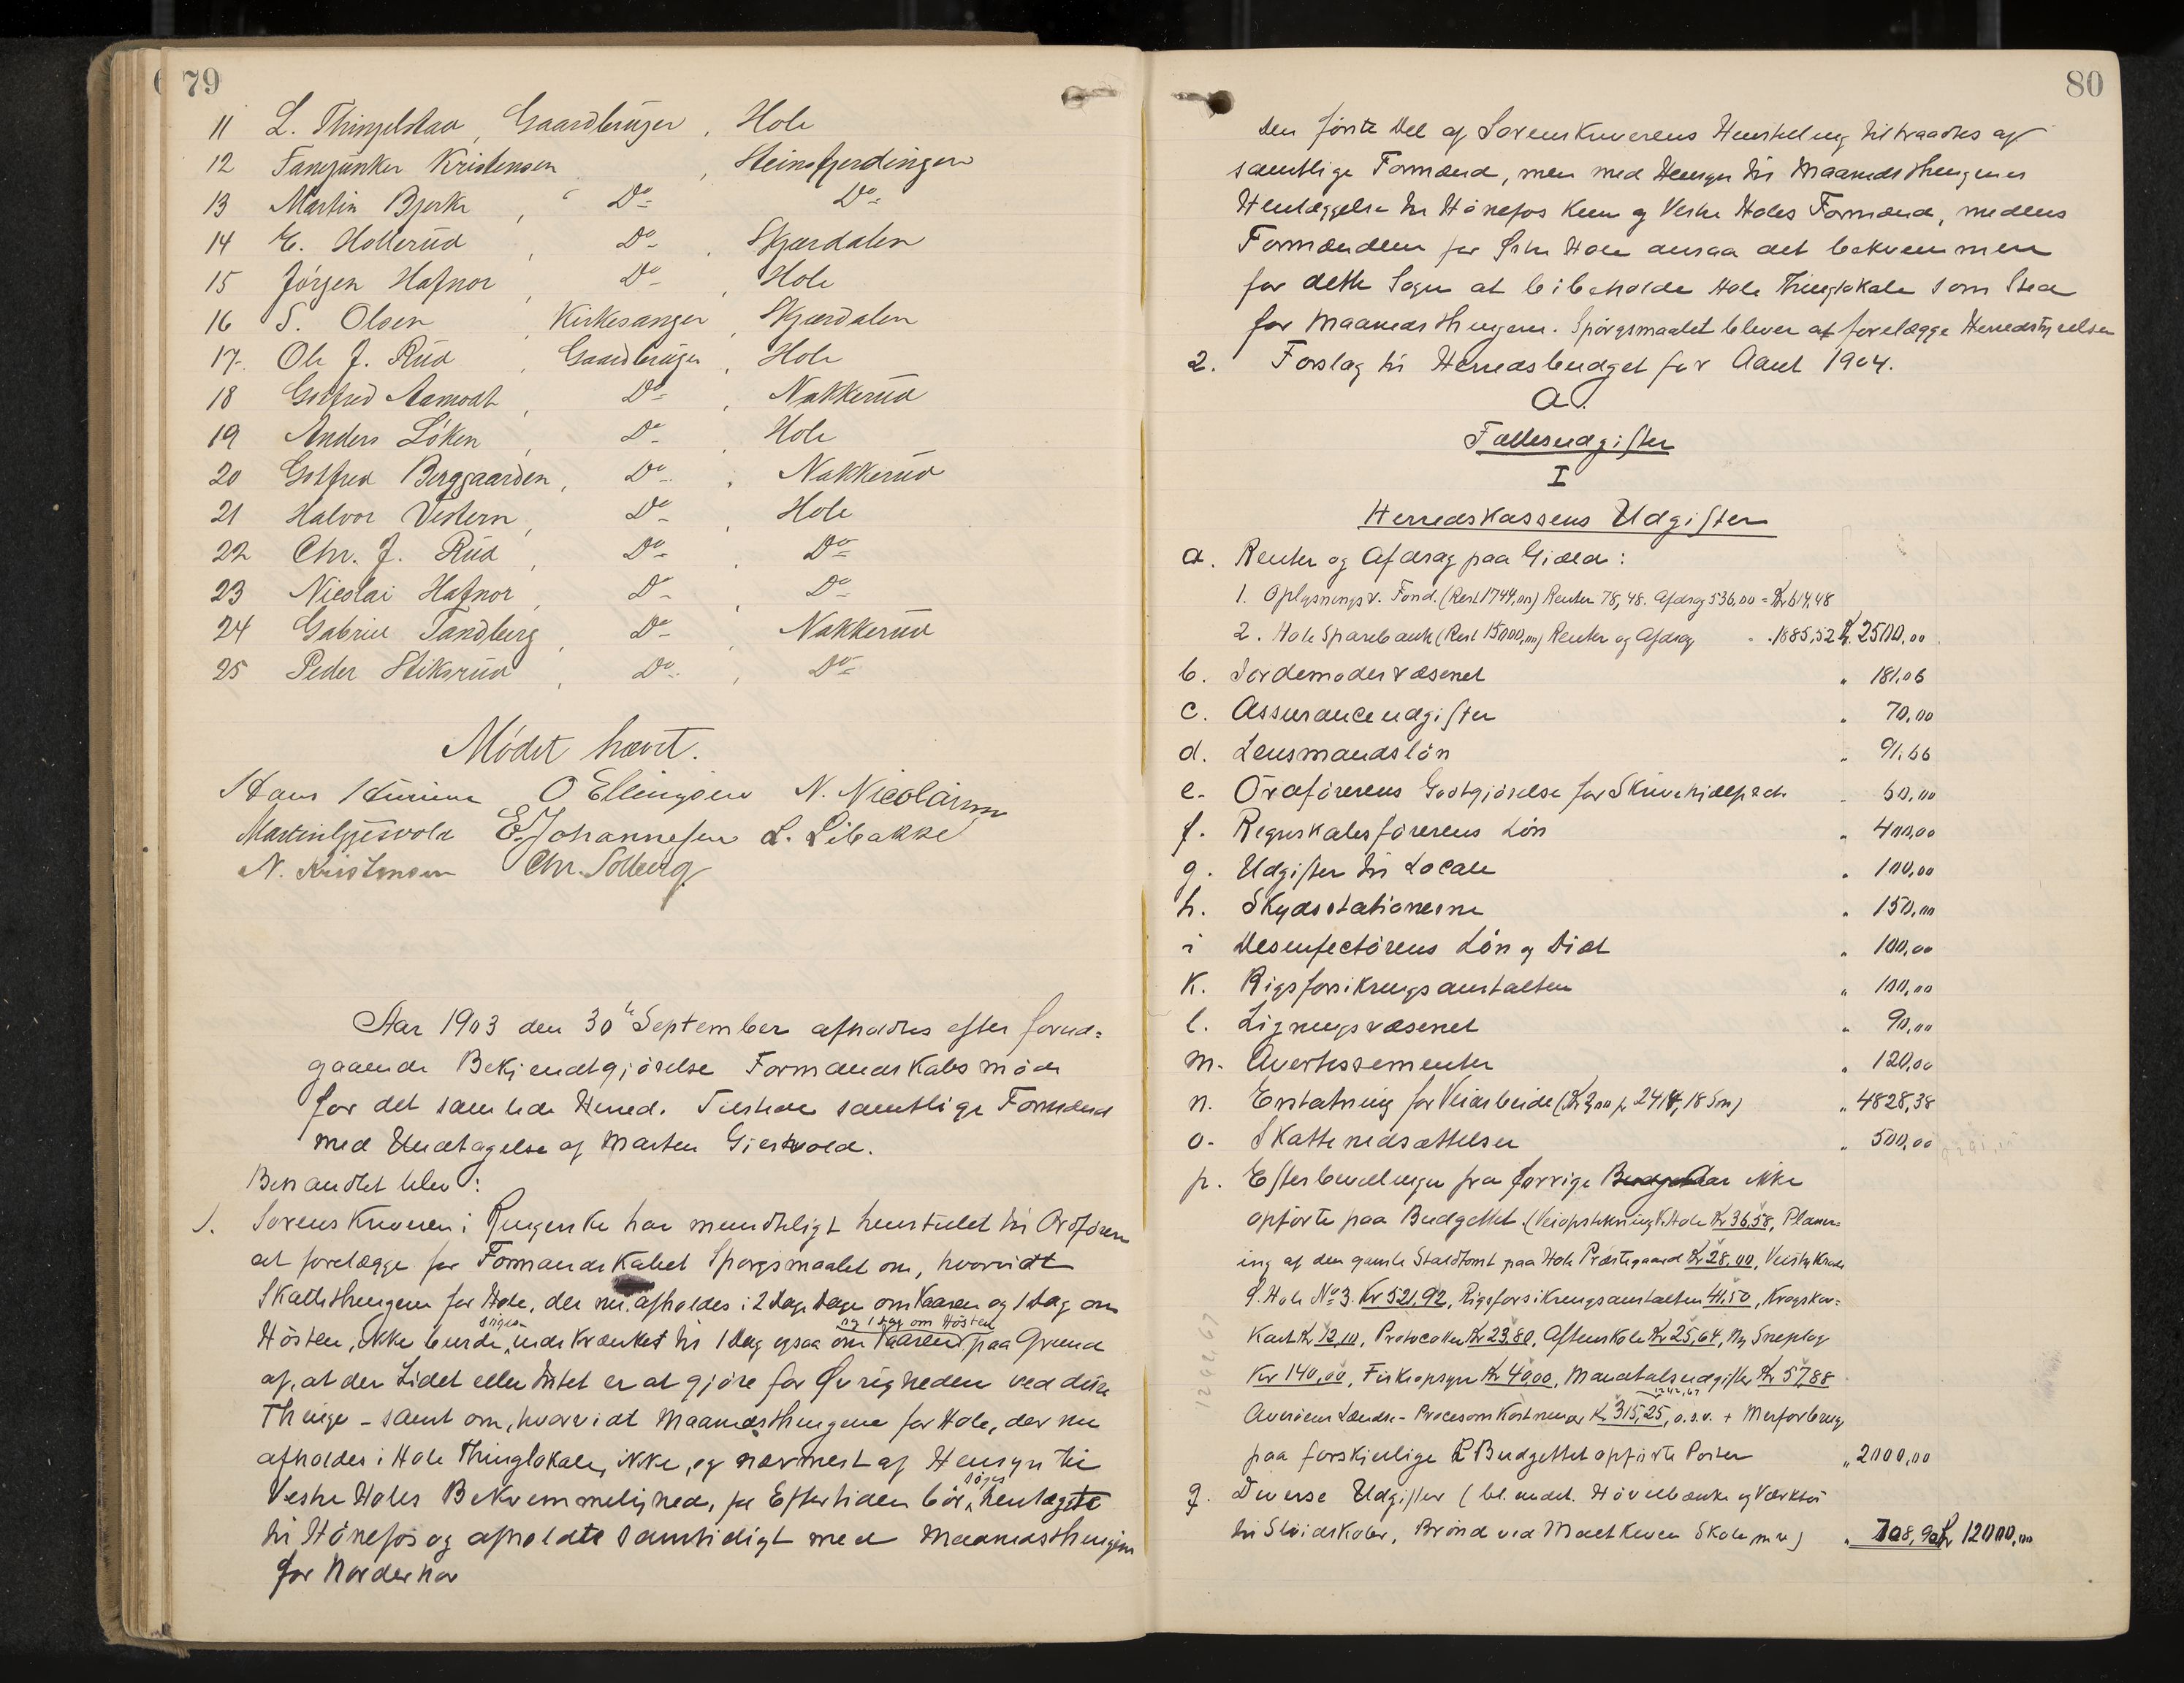 79
11 L. Thingelstad, Gaardbruger, Hole
12 Fanejunker Kristensen, Steinsfjerdingen
13 Martin Bjerke, " Do, Do
14 E. Hollerud, Do, Skjærdalen
15 Jörgen Hafnor, Do, Hole
16 S. Olsen, Kirkesanger, Skjærdalen
17. Ole J. Rud, Gaardbruger, Hole
18 Gotfred Aamodt, Do, Nakkerud
19 Anders Löken, Do, Hole
20 Gotfred Berggaarden, Do, Nakkerud
21 Halvor Vestern, Do, Hole
22 Chr. J. Rud, Do, Do
23 Nicolai Hafnor, Do, Do
24 Gabriel Tandberg, Do, Nakkerud
25 Peder Stiksrud, Do, Do
Mödet hævet.
Hans O Ellingsen N. Nicolaisen
Martin Gjesvold E. Johannesen L. Libakke
N. Kristensen Chr. Solberg
Aar 1903 den 30te September afholdtes efter forud-
gaaende Bekjendtgjörelse Formandskabsmöde
for det samlede Herred. Tilstede samtlige Formænd
med Undtagelse af Marten Gjesvold.
Behandlet blev:
1. Sorenskriveren i Ringerike har mundtligt henstillet til Ordföreren
at forelægge for Formandskabet Spørgsmaalet om, hvorvidt
Skattethingene for Hole, der nu afholdes i 2 Dage om Vaaren og 1 Dag om
Hösten, ikke burde søges indskrænket til 1 Dag ogsaa om Vaaren og 1 Dag om Hösten paa Grund
af, at der Lidet eller Intet er at gjöre for Øvrigheden ved disse
Thinge - samt om, hvorvidt Maanedsthingene for Hole, der nu
afholdes i Hole Thinglokale, ikke, og nærmest af Hensyn til
Vestre Holes Bekvemmelighed, for Eftertiden bör söges henlagte
til Hönefos og afholdte samtidigt med Maanedsthingene
for Norderhov
80
Den förste Del af Sorenskriverens Henstilling tiltraadtes af
samtlige Formænd, men med Hensyn til Maanedsthingenes
Henlæggelse til Hönefos kun af Vestre Holes Formænd, medens
Formændene for Østre Hole ansaa det bekvemmere
for dette Sogn at beibeholde Hole Thinglokale som Sted
for Maanedsthingene. Spörgsmaalet bliver at forelægge Herredstyrelsen
2. Forslag til Herredsbudget for Aaret 1904.
A.
Fællesudgifter
I
Herredskassens Udgifter
a. Renter og Afdrag paa Gjæld:
1. Oplysningsv. Fond. (Rest 1744,00) Renter 78,48. Afdrag 536,00 = Kr 614,48
2. Hole Sparebank (Rest 15000,00) Renter og Afdrag " 1885,52 Kr. 2500,00
b. Jordemodervæsenet " 181,06
c. Assuranceudgifter " 70,00
d. Lensmandslön " 91,66
e. Ordförerens Godtgjörelse for Skrivehjelp etc. " 60,00
f. Regnskabsförerens Lön " 400,00
g. Udgifter til Locale " 100,00
h. Skydsstationerne " 150,00
i Desinfectörens Lön og Diæt " 100,00
k. Rigsforsikringsanstalten " 100,00
l. Ligningsvæsenet " 90,00
m. Avertissementer " 120,00
n. Erstatning for Veiarbeide (Kr 2,00 pr 2414,18 Sm) " 4828,38
o. Skattenedsættelser " 500,00
p. Efterbevillinger fra forrige Aar ikke
opförte paa Budgettet. (Veiopstikning V. Hole Kr 36,58, Planer-
ing af den gamle Staldtomt paa Hole Præstegaard Kr 28,00,
Ö. Hole No 3. Kr 521,92, Rigsforsikringsanstalten 41,50,
Kart Kr 12,10, Protocoller Kr 23,80, Aftenskole Kr 25,64, Ny Sneplog
Kr 140,00, Fiskeopsyn Kr 40,00, Mandtalsudgifter Kr 57,88
1242,67
Procesomkostninger Kr 315,25, o.s.v. + Merforbrug
paa forskjellige Budgettet opförte Poster " 2000,00
q. Diverse Udgifter (bl. andet. Hövelbænke og Værktöi
til Slöidskoler, Brönd ved Skole m.v.) " 708,90 Kr 12000,00
1242,67